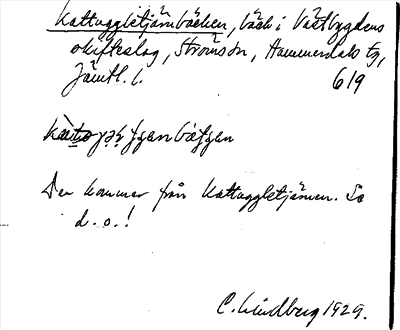 Kattuggletjärnbäcken, bäck i Västbygdens
skifteslag, Strömsån, Hammerdals tg,
Jämtl. l. 619
Den kommer från Kattuggletjärnen. Se
d. o.!
C. Lindberg 1929.